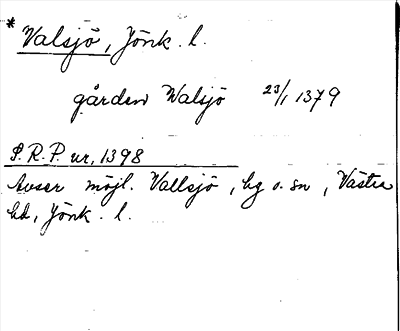 * Valsjö, Jönk. l.
gården Walsjö 23/1 1379
S.R.P. nr. 1398
Avser möjl. Vallsjö, hg o. sn, Västra
hd, Jönk. l.